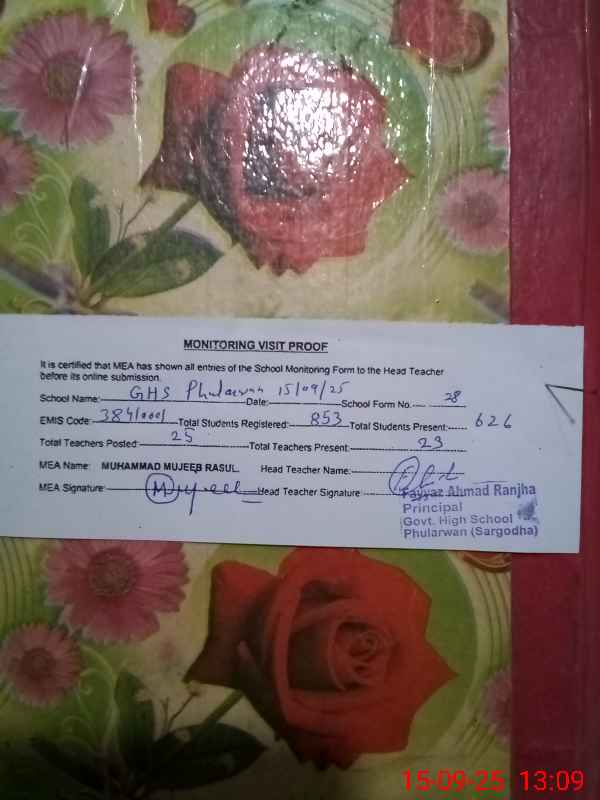 MONITORING VISIT PROOF
It is certified that MEA has shown all entries of the School Monitoring Form to the Head Teacher
before its online submission.
School Name: GHS Phularwan Date: 15/09/25 School Form No. 28
EMIS Code: 38410001 Total Students Registered: 853 Total Students Present: 626
Total Teachers Posted: 25 Total Teachers Present: 23
MEA Name: MUHAMMAD MUJEEB RASUL Head Teacher Name:
MEA Signature: Mujeeb Head Teacher Signature
Fayyaz Ahmad Ranjha
Principal
Govt. High School
Phularwan (Sargodha)
15-09-25 13:09